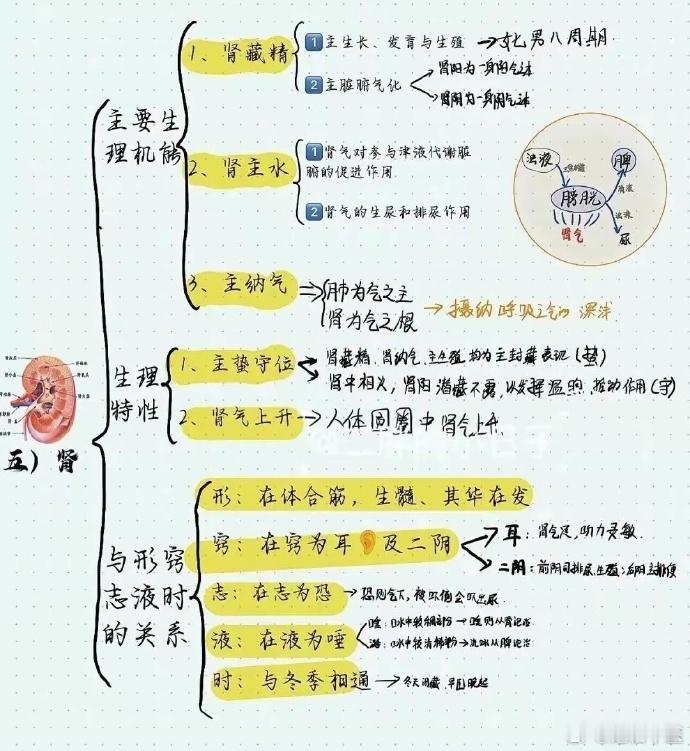 五）肾
主要生
理机能
1、肾藏精
1 主生长、发育与生殖 → 女七男八周期
2 主脏腑气化
肾阳为一身阳气之本
肾阴为一身阴气之本
2、肾主水
1 肾气对参与津液代谢脏
腑的促进作用
2 肾气的生尿和排尿作用
津液
脾
膀胱
肾气
尿
3、主纳气
肺为气之主
肾为气之根
→ 摄纳呼吸之气的深浅
生理
特性
1、主蛰守位
肾藏精、肾纳气、主生殖均为主封藏表现（蛰）
2、肾气上升 → 人体圆圈中肾气上升
与形窍
志液时
的关系
形：在体合筋，生髓、其华在发
窍：在窍为耳 及二阴
耳：肾气足，听力灵敏
二阴：前阴司排尿生殖；后阴主排便
志：在志为恐 → 恐则气下，被吓倒会吓出尿
液：在液为唾
时：与冬季相通 → 冬天闭藏，早卧晚起